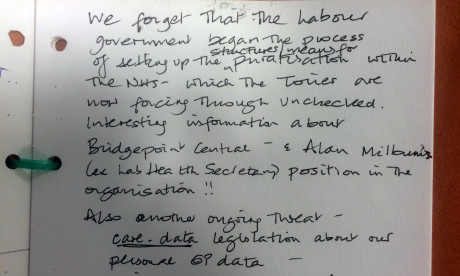 We forget that the Labour
government began the process
of setting up the structures/means for privatisation within
the NHS - which the Tories are
now forcing through unchecked.
Interesting information about
Bridgepoint Central - & Alan Milburn's
(ex Lab Health Secretary) position in the
organisation !!
Also another ongoing threat -
care.data legislation about our
personal GP data -